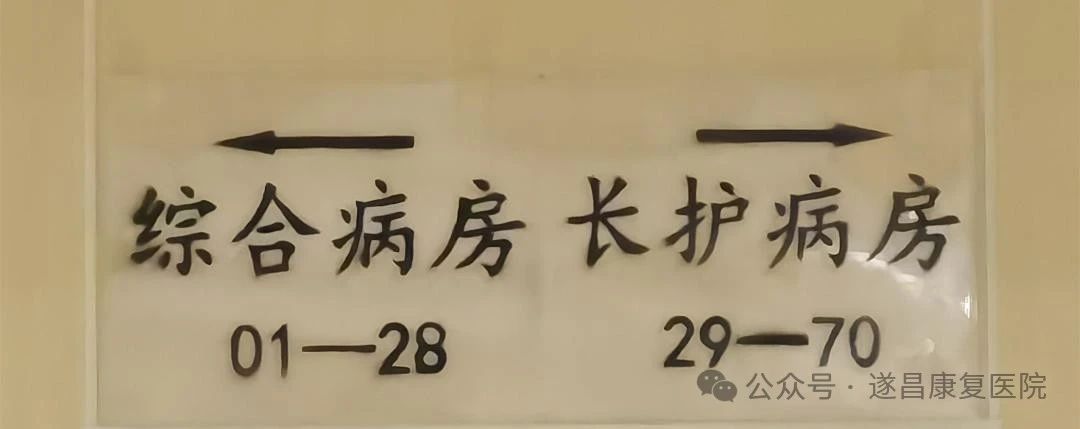 综合病房 长护病房
01—28 29—70
公众号·遂昌康复医院